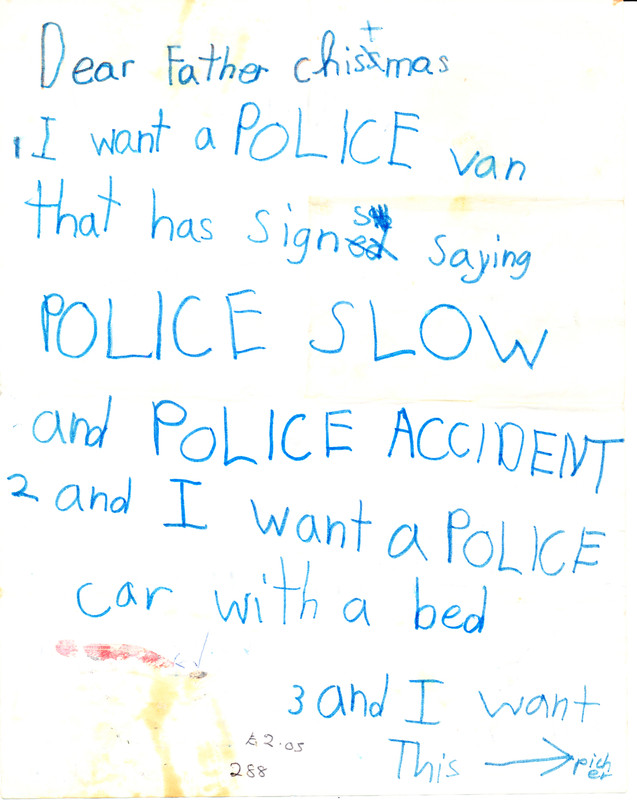 Dear Father chistmas
1 I want a POLICE van
that has signs saying
POLICE SLOW
and POLICE ACCIDENT
2 and I want a POLICE
car with a bed
3 and I want
This → picher
£2.05
288